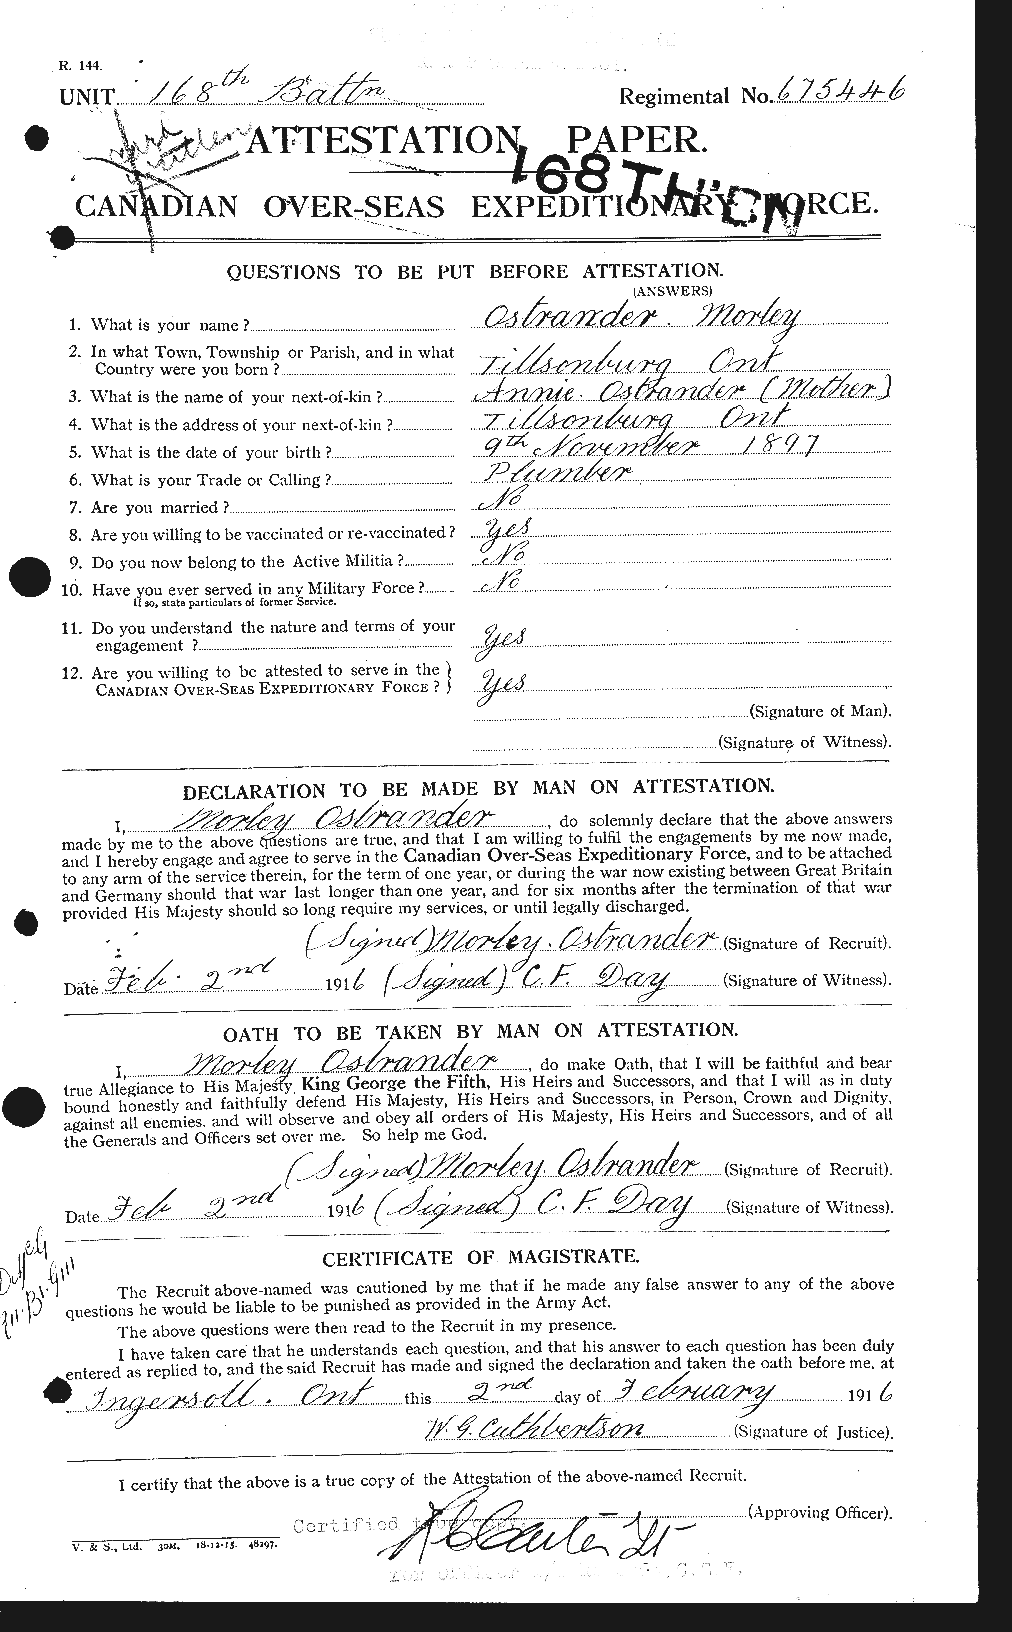 R. 144.
UNIT 168th Battn Regimental No. 675446
ATTESTATION PAPER.
168TH BN
CANADIAN OVER-SEAS EXPEDITIONARY FORCE.
QUESTIONS TO BE PUT BEFORE ATTESTATION.
(ANSWERS)
1. What is your name? Ostrander. Morley
2. In what Town, Township or Parish, and in what
Country were you born? Tillsonburg Ont
3. What is the name of your next-of-kin? Annie Ostrander (Mother)
4. What is the address of your next-of-kin? Tillsonburg Ont
5. What is the date of your birth? 9th November 1897
6. What is your Trade or Calling? Plumber
7. Are you married? No
8. Are you willing to be vaccinated or re-vaccinated? Yes
9. Do you now belong to the Active Militia? No
10. Have you ever served in any Military Force? No
If so, state particulars of former Service.
11. Do you understand the nature and terms of your
engagement? Yes
12. Are you willing to be attested to serve in the }
CANADIAN OVER-SEAS EXPEDITIONARY FORCE? } Yes
(Signature of Man).
(Signature of Witness).
DECLARATION TO BE MADE BY MAN ON ATTESTATION.
I, Morley Ostrander, do solemnly declare that the above answers
made by me to the above questions are true, and that I am willing to fulfil the engagements by me now made,
and I hereby engage and agree to serve in the Canadian Over-Seas Expeditionary Force, and to be attached
to any arm of the service therein, for the term of one year, or during the war now existing between Great Britain
and Germany should that war last longer than one year, and for six months after the termination of that war
provided His Majesty should so long require my services, or until legally discharged.
(Signed) Morley. Ostrander (Signature of Recruit).
Date Feb. 2nd 1916 (Signed) C. F. Day (Signature of Witness).
OATH TO BE TAKEN BY MAN ON ATTESTATION.
I, Morley Ostrander, do make Oath, that I will be faithful and bear
true Allegiance to His Majesty King George the Fifth, His Heirs and Successors, and that I will as in duty
bound honestly and faithfully defend His Majesty, His Heirs and Successors, in Person, Crown and Dignity,
against all enemies, and will observe and obey all orders of His Majesty, His Heirs and Successors, and of all
the Generals and Officers set over me. So help me God.
(Signed) Morley. Ostrander (Signature of Recruit).
Date Feb 2nd 1916 (Signed) C. F. Day (Signature of Witness).
CERTIFICATE OF MAGISTRATE.
The Recruit above-named was cautioned by me that if he made any false answer to any of the above
questions he would be liable to be punished as provided in the Army Act.
The above questions were then read to the Recruit in my presence.
I have taken care that he understands each question, and that his answer to each question has been duly
entered as replied to, and the said Recruit has made and signed the declaration and taken the oath before me, at
Ingersoll. Ont this 2nd day of February 1916
W. G. Cuthbertson (Signature of Justice).
I certify that the above is a true copy of the Attestation of the above-named Recruit.
(Approving Officer).
Certified
V. & S., Ltd. 30M. 18-12-15. 48297.